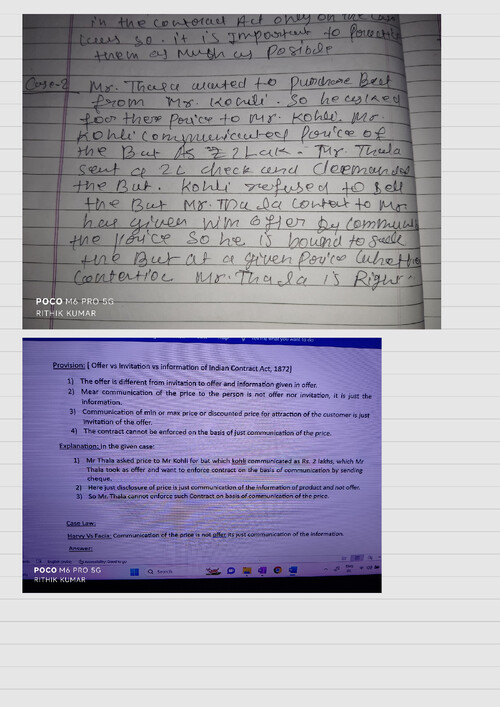 in the contract Act only on the
so. it is Important to Practice
them as Much as Posible
Case-2 Mr. Thala wanted to Purchase Bat
from Mr. Kohli. So he asked
for there Price to Mr. Kohli. Mr.
Kohli communicated Price of
the Bat As ₹ 2 Lak. Mr. Thala
sent a 2L check and Deemanded
the Bat. Kohli refused to Sell
the Bat Mr. Thala contest to Mr
has given him offer by commun
the Price So he is bound to
the Bat at a given Price
Mr. Thala is Right.
POCO M6 PRO 5G
RITHIK KUMAR
Provision: [ Offer vs Invitation vs information of Indian Contract Act, 1872]
1) The offer is different from invitation to offer and information given in offer.
2) Mear communication of the price to the person is not offer nor invitation, it is just the
information.
3) Communication of min or max price or discounted price for attraction of the customer is just
invitation of the offer.
4) The contract cannot be enforced on the basis of just communication of the price.
Explanation: In the given case:
1) Mr Thala asked price to Mr Kohli for bat which kohli communicated as Rs. 2 lakhs, which Mr
Thala took as offer and want to enforce contract on the basis of communication by sending
cheque.
2) Here just disclosure of price is just communication of the information of product and not offer.
3) So Mr. Thala cannot enforce such Contract on basis of communication of the price.
Case Law:
Harvy Vs Facie: Communication of the price is not offer its just communication of the information.
Answer:
Search
POCO M6 PRO 5G
RITHIK KUMAR